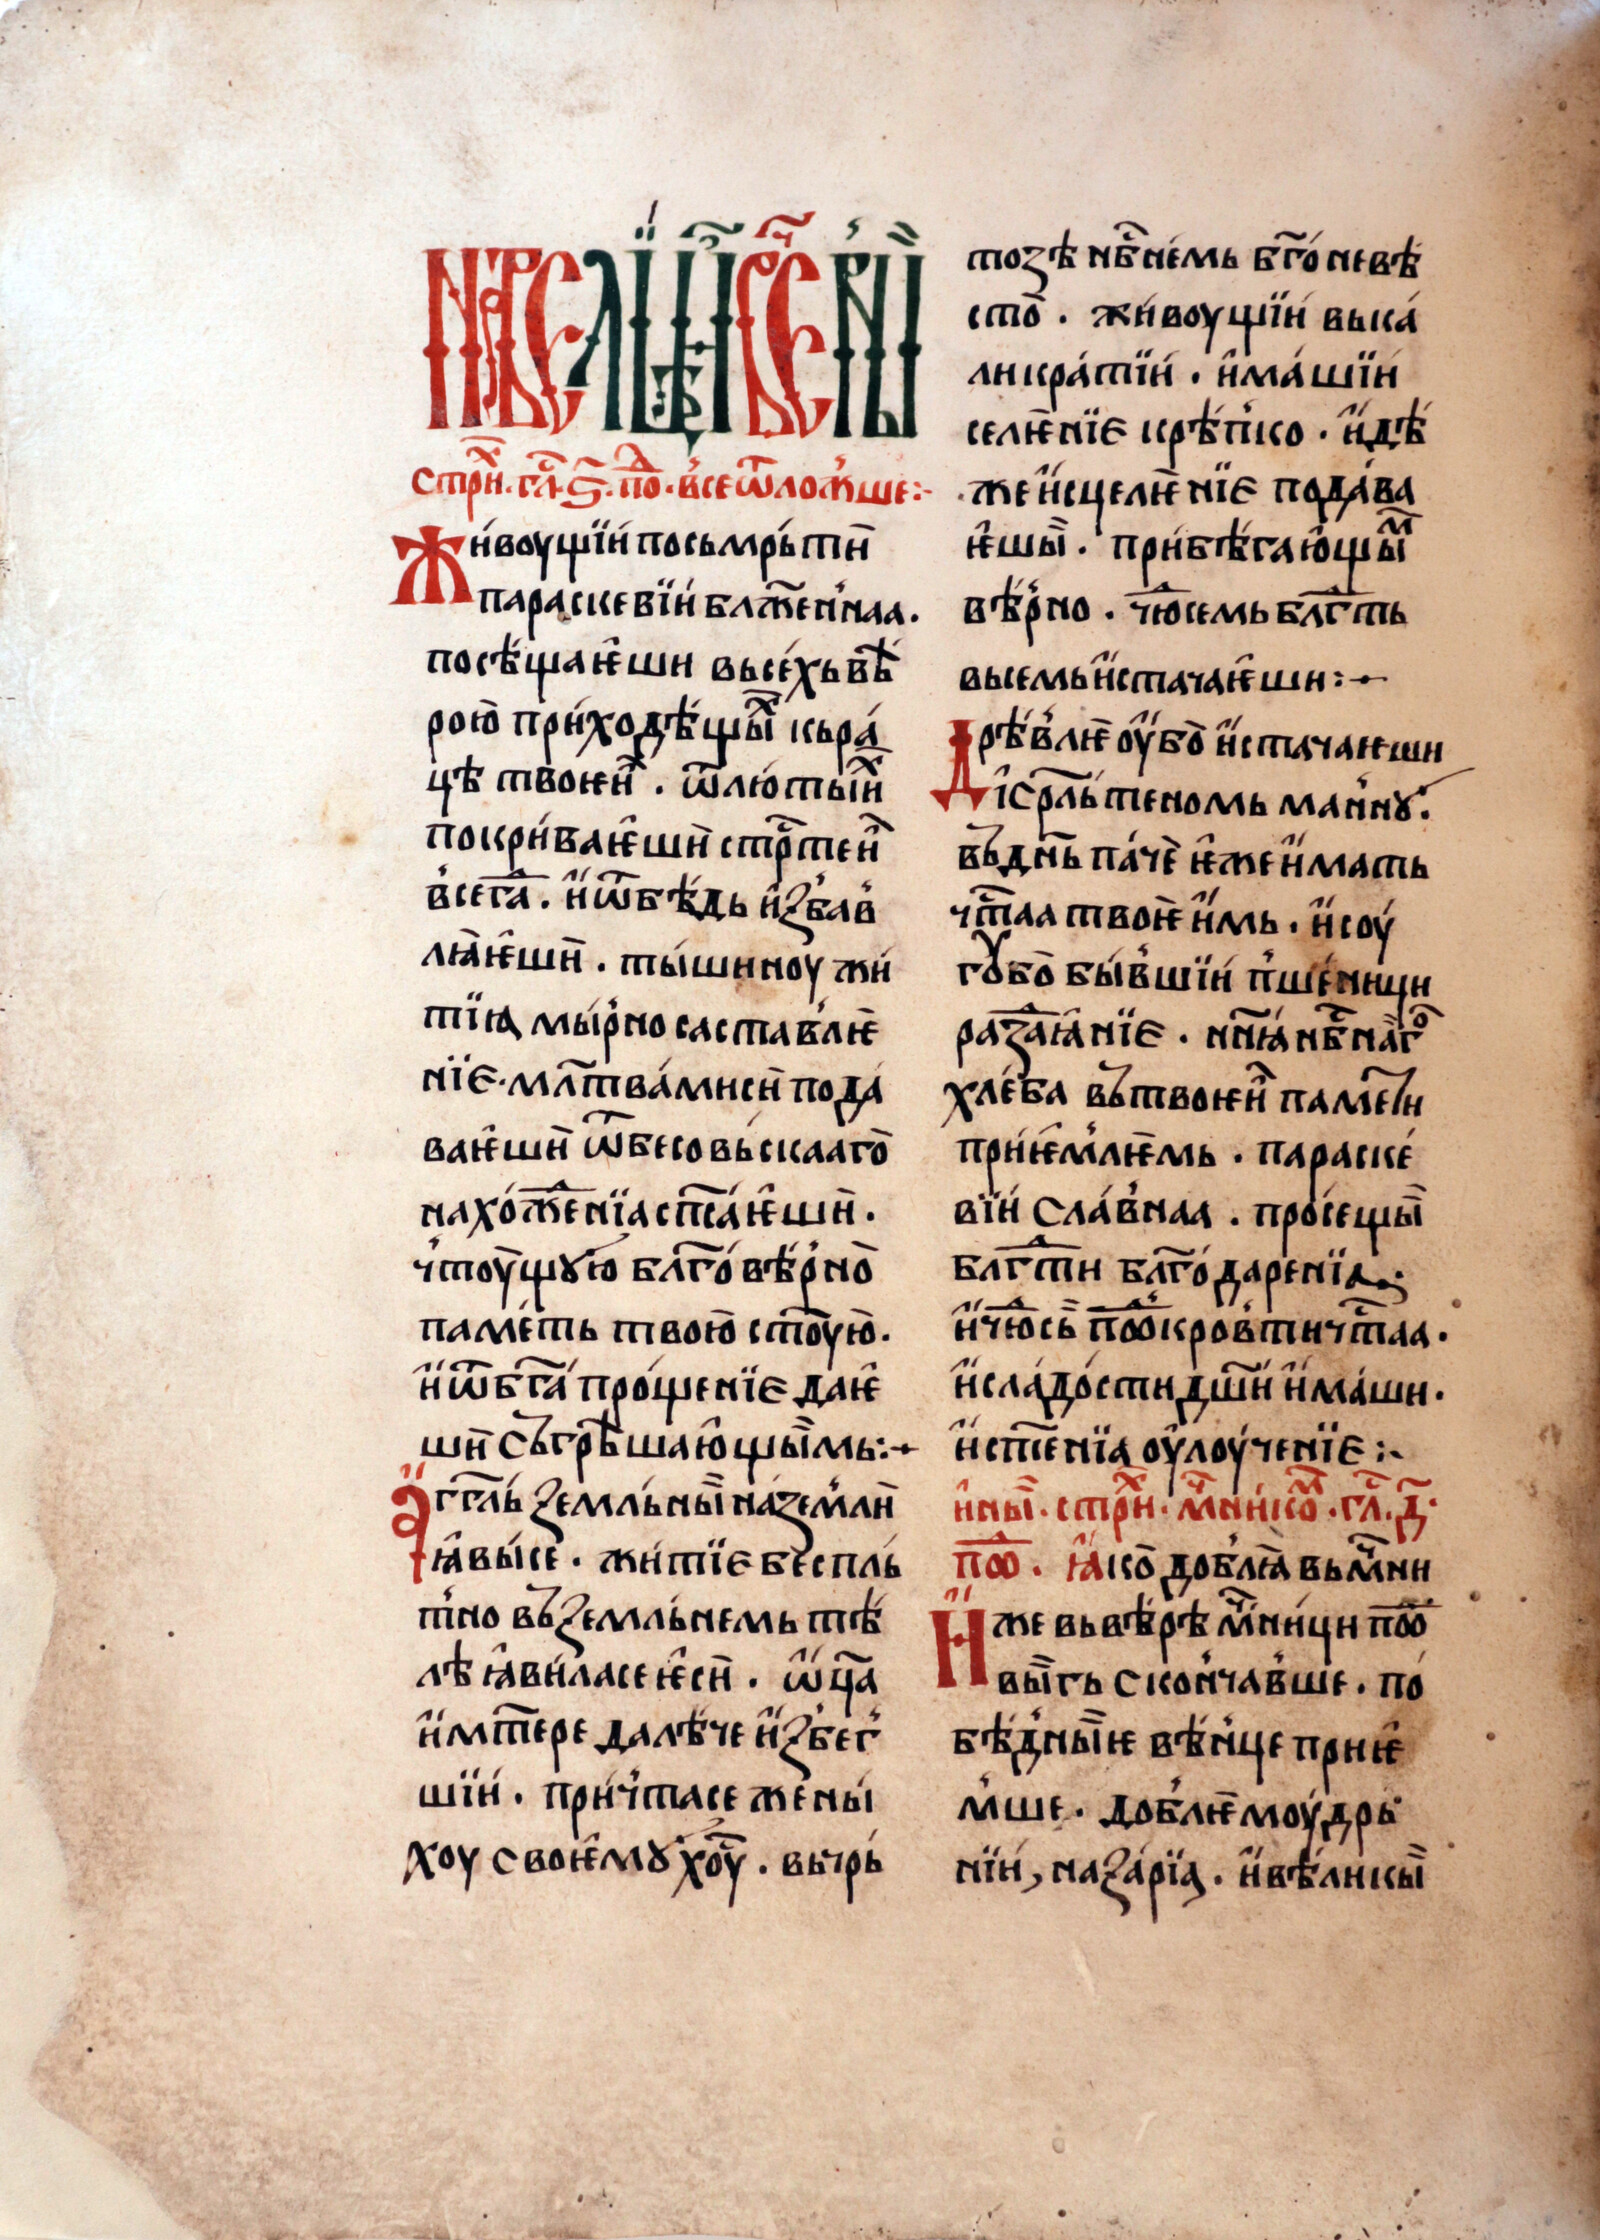 стрⷯи҆. гла҄. ѕ҃. пⷣо. в҆се ѿлож҆ше:
Жи́воущїи́ посьмрь́тѝ
параскевїи́ блж҃ен'наа.
посѣ́щаѥ҆ши вьсе́хь вѣ́
рою̀ при́ходѣ́щыⷯ кьра́
цѣ твоѥи҆. ѿ лю́тыⷯи
покри́ваѥ҆шѝ стрⷭ҇теи҆
в҆сегⷣа. и҆ ѿ бѣ́дь и҆ꙁ'бав'
лꙗ́ѥ҆шѝ. ты́шиноу жи́
тїꙗ мы́р'но састав'лѥ̀
нїѥ. млт҃ва́ми сѝ пода́
ваѥ҆шѝ ѿ бесовь́скааго̀
нахо́жⷣенїа сп҃са́ѥ҆шѝ.
ч'тоу́щꙋю бл҃го́вѣ́р'но̀
паме́ть твою̀ ст҃оу́ю.
и҆ ѿ бг҃а́ про́щенїѥ даѥ҆
шѝ сьгрѣ́шаю҆щы́мь:
Агг҃ль ꙁемль́ны́ наꙁем'лѝ
ꙗ҆вы́се. жи́тїѥ бесплъ
т'но вь ꙁемль́немь тѣ́
лѣ ꙗ҆ви́ласе ѥ҆сѝ. ѿц҃а
и҆ мт҃ере далѣ́че и҆ꙁ'бег'
шїи́. при́ч'тасе жены́
хоу своѥ҆мꙋ хо҃у. вьчрь́
тоꙁѣ нб҃не́мь бг҃о́невѣ́
сто̀. жи́воущїи́ выка́
ликра́тїи́. и҆ма́шїи́
селѥ́нїѥ крѣ́п'ко. и҆дѣ́
же и҆сцелѥ̀нїѥ пода́ва
ѥ҆шы̀. при́бѣ́гаю҆щыⷨ
вѣ́р'но. чю́семь блгⷣть
вьсемь и҆стачаѥ҆ши:
Дрѣ́в'лѥ̀ оу҆бо̀ и҆стачаѥши
і҆ср҃ль́теномь ман'нꙋ.
въ дн҃ь па́чѐ ѥ҆же и҆мать
чт҃аа твоѥ̀ и҆мь. и҆ соу́
гꙋбо̀ бы́в'шїи́ п'ше́ници
раꙁⷣаꙗ́нїѥ. нн҃ꙗ́ нбⷭ҇на́го
хле́ба въ твоѥи҆ паметⷮи
при́ѥ҆м'лѥ̀мь. параске́
вїи́ сла́в'наа. про́сещы̀
блгⷣти бл҃го́даренїа.
и҆ чюⷣсь поⷣкров'ти чт҃аа.
и҆ сла́дости дш҃и́ и҆ма́ши.
и҆ сп҃сенїа оу҆лоу́ченїѥ:
и҆ны̀. стрⷯи. мⷱ҇нико́ⷨ. гл҃. д҃.
поⷣ. ꙗ҆ко̀ доб'лꙗ̀ вьмⷱ҇ни
И҆же вь вѣ́рѣ мⷱ҇ни́ци поⷣ
вы̀гь скон'чав'ше. по́
бѣ́д'ны̀ѥ вѣ́н'це приѥ҆
м'ше. доб'лѥ̀моу́дрь
нїи́, наꙁа́рїа. и҆ вѣ́ликы̀